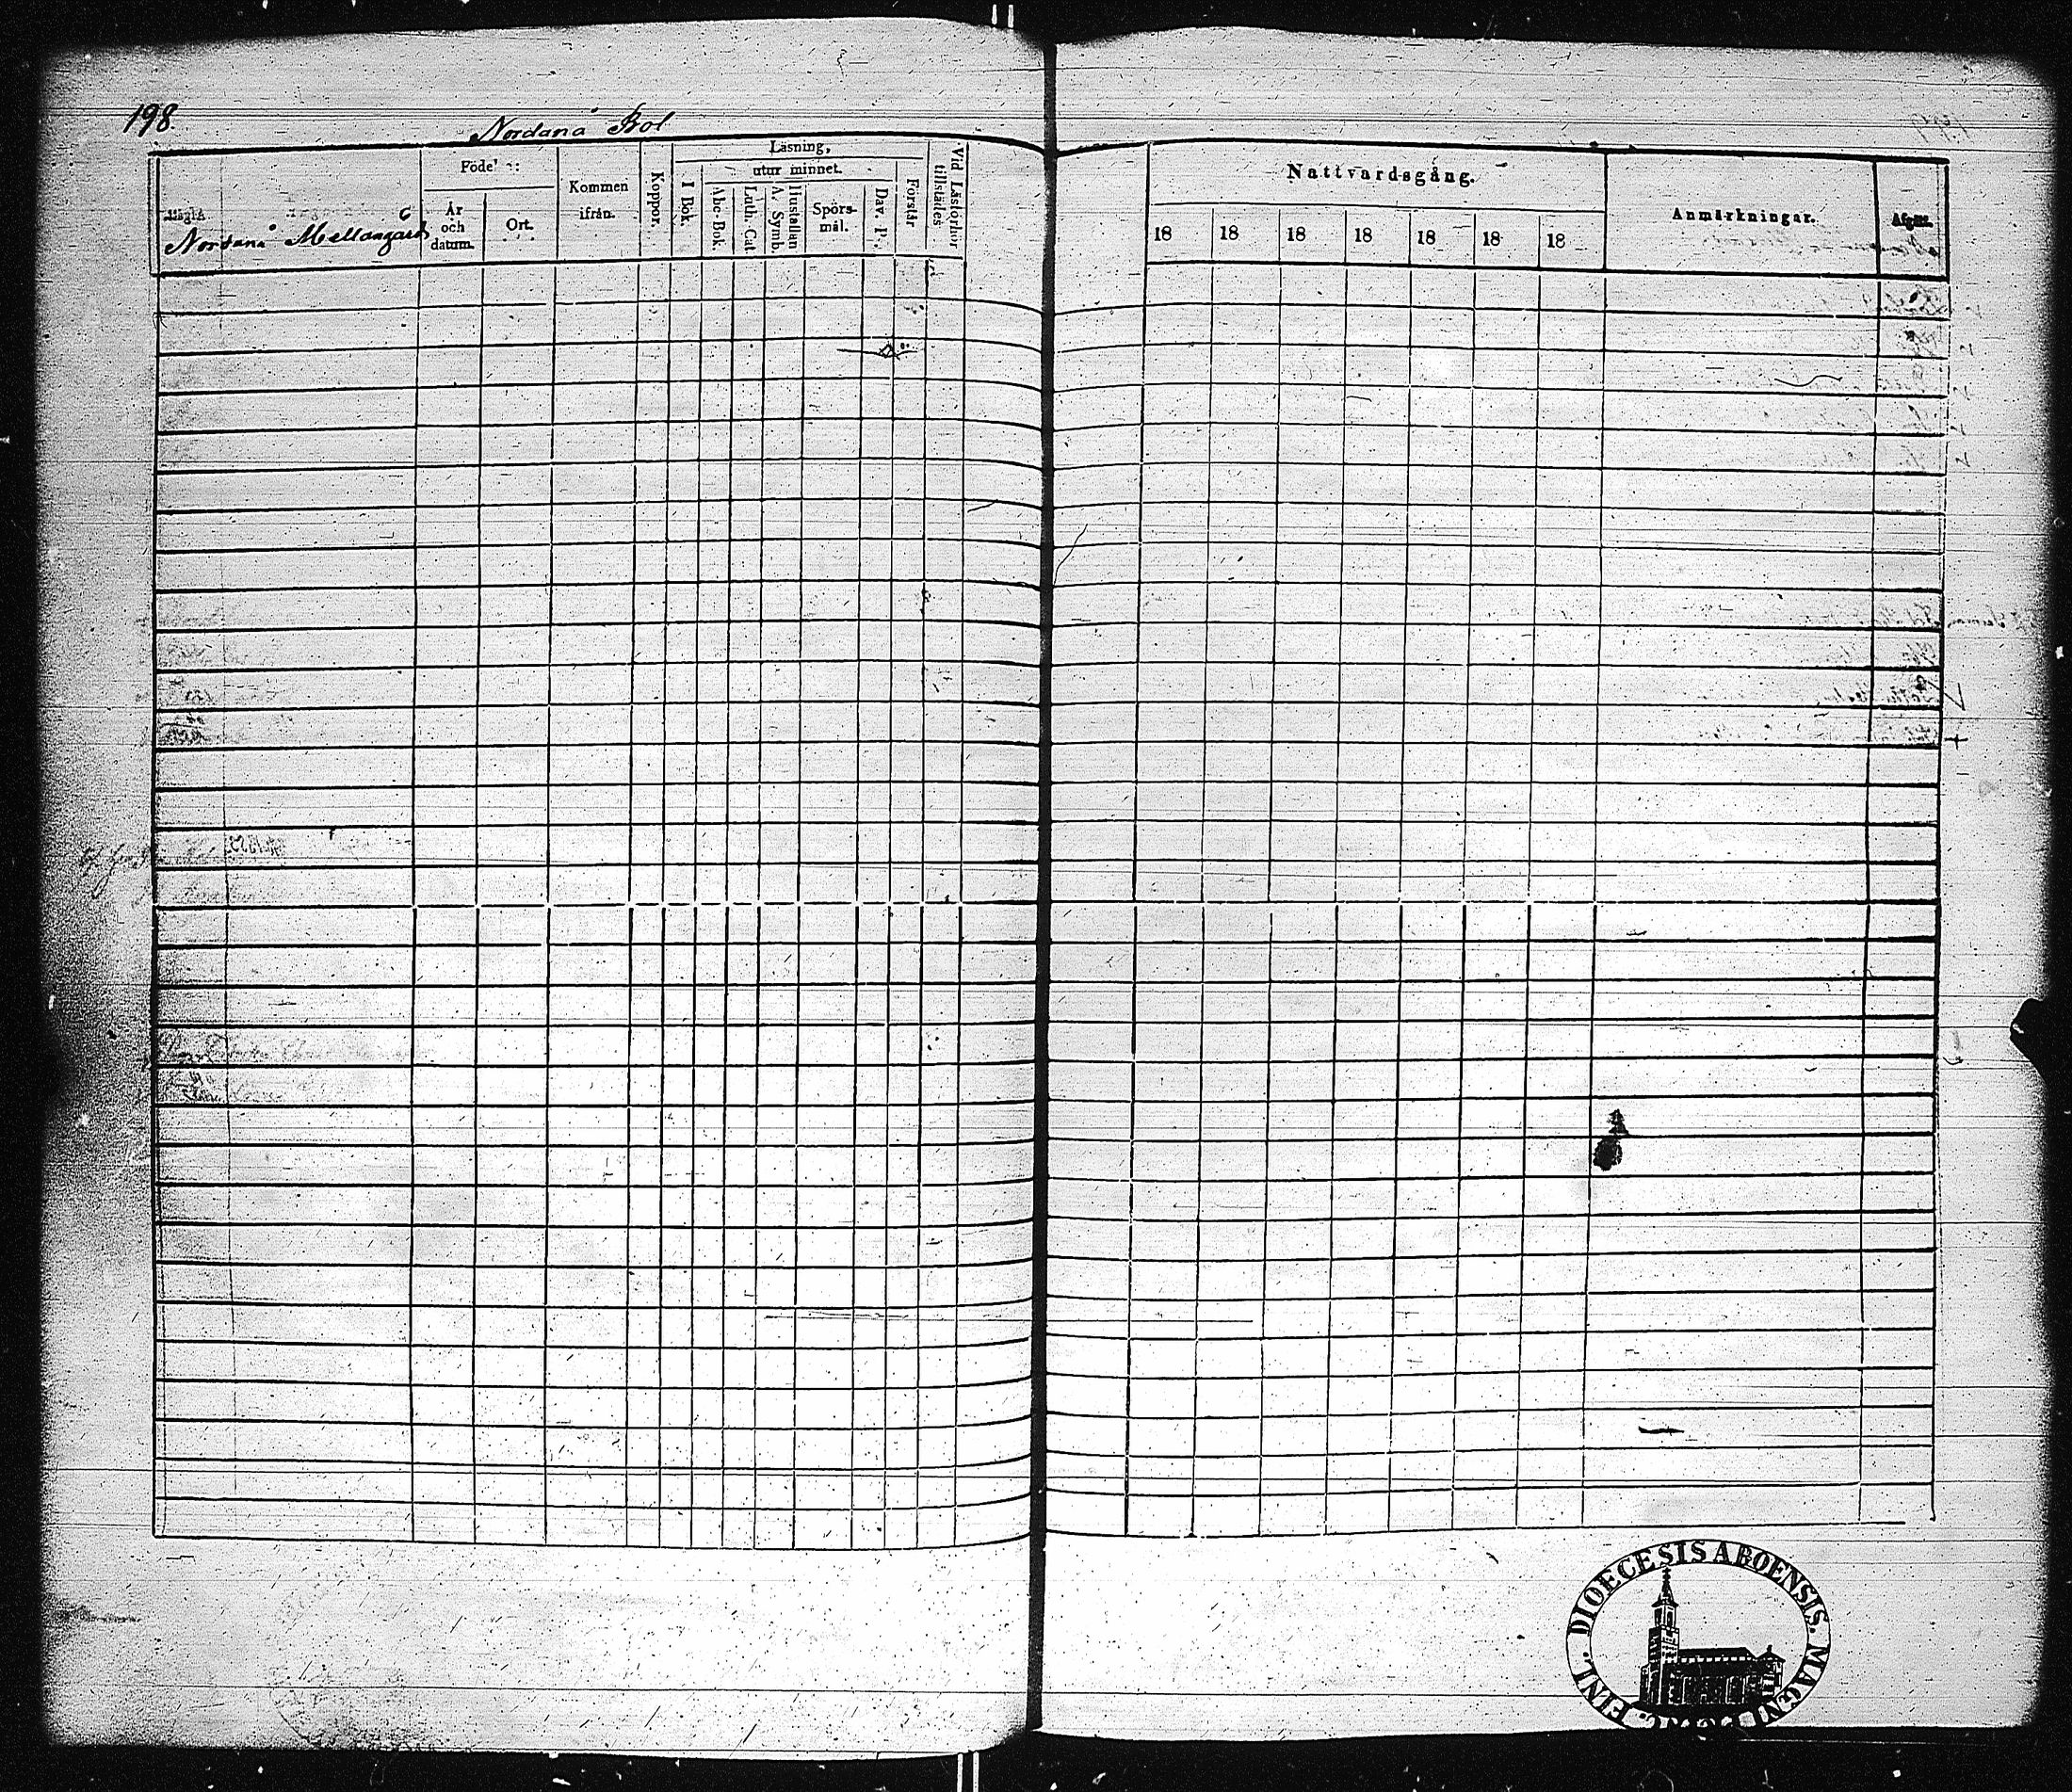 198.
Nordanå Bol
Nordanå Mellangård
Födel
År och datum.
Ort.
Kommen ifrån.
Koppor.
Läsning,
I Bok.
utur minnet.
Abc-Bok.
Luth. Cat.
Hustaflan A. Symb.
Spörs-mål.
Dav. P.
Förstår
Vid Läsförhör tillstädes
Nattvardsgång.
18 18 18 18 18 18 18
Anmärkningar.
Afgått.
DIOECESIS ABOENSIS. MAGNI FINL.